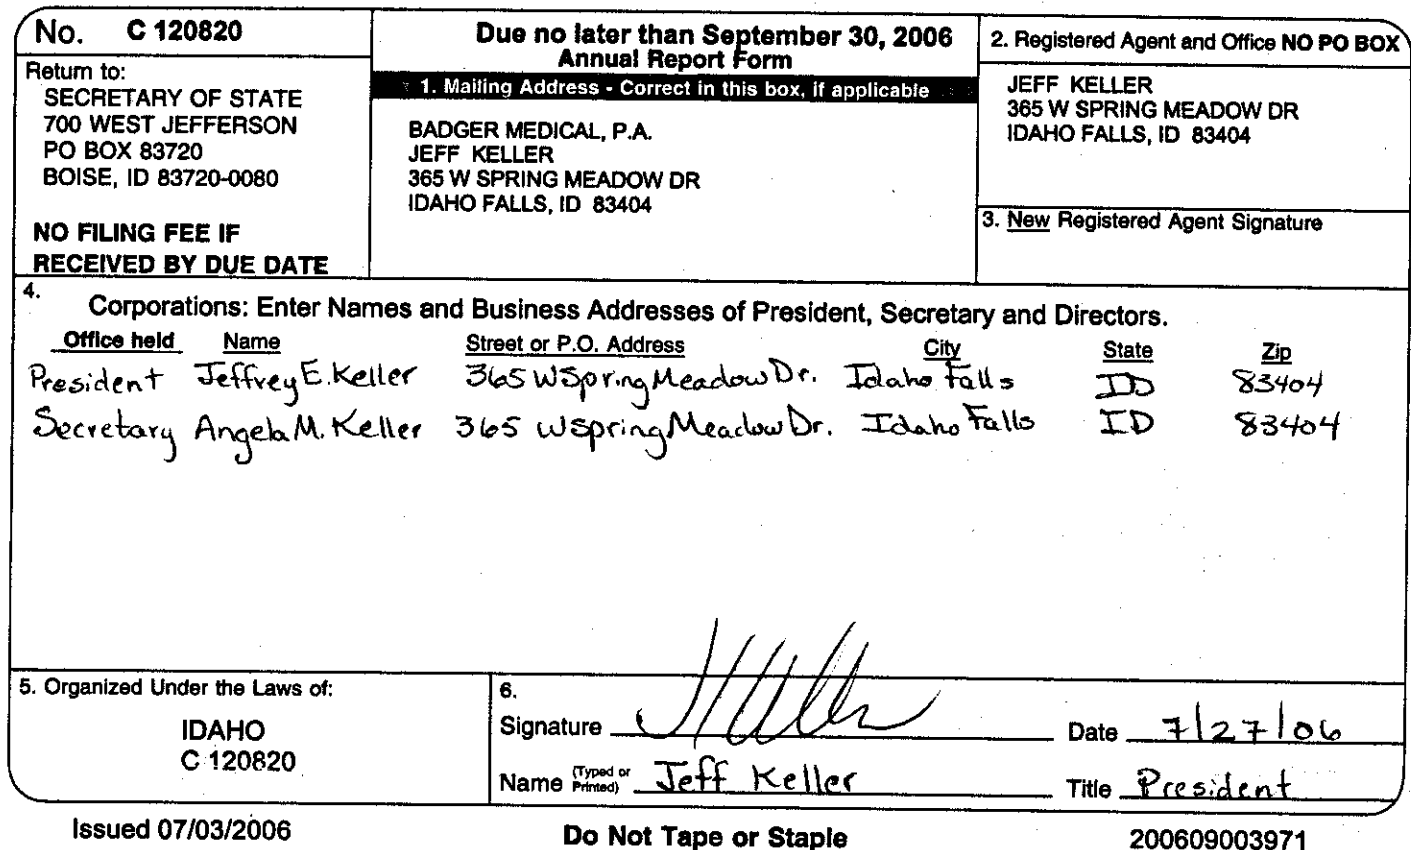 No. C 120820
Return to:
SECRETARY OF STATE
700 WEST JEFFERSON
PO BOX 83720
BOISE, ID 83720-0080
NO FILING FEE IF
RECEIVED BY DUE DATE
Due no later than September 30, 2006
Annual Report Form
1. Mailing Address - Correct in this box, if applicable
BADGER MEDICAL, P.A.
JEFF KELLER
365 W SPRING MEADOW DR
IDAHO FALLS, ID 83404
2. Registered Agent and Office NO PO BOX
JEFF KELLER
365 W SPRING MEADOW DR
IDAHO FALLS, ID 83404
3. New Registered Agent Signature
4.
Corporations: Enter Names and Business Addresses of President, Secretary and Directors.
Office held Name Street or P.O. Address City State Zip
President Jeffrey E. Keller 365 W Spring Meadow Dr. Idaho Falls ID 83404
Secretary Angela M. Keller 365 W Spring Meadow Dr. Idaho Falls ID 83404
5. Organized Under the Laws of:
IDAHO
C 120820
6.
Signature Date 7/27/06
Name (Typed or Printed) Jeff Keller Title President
Issued 07/03/2006 Do Not Tape or Staple 200609003971